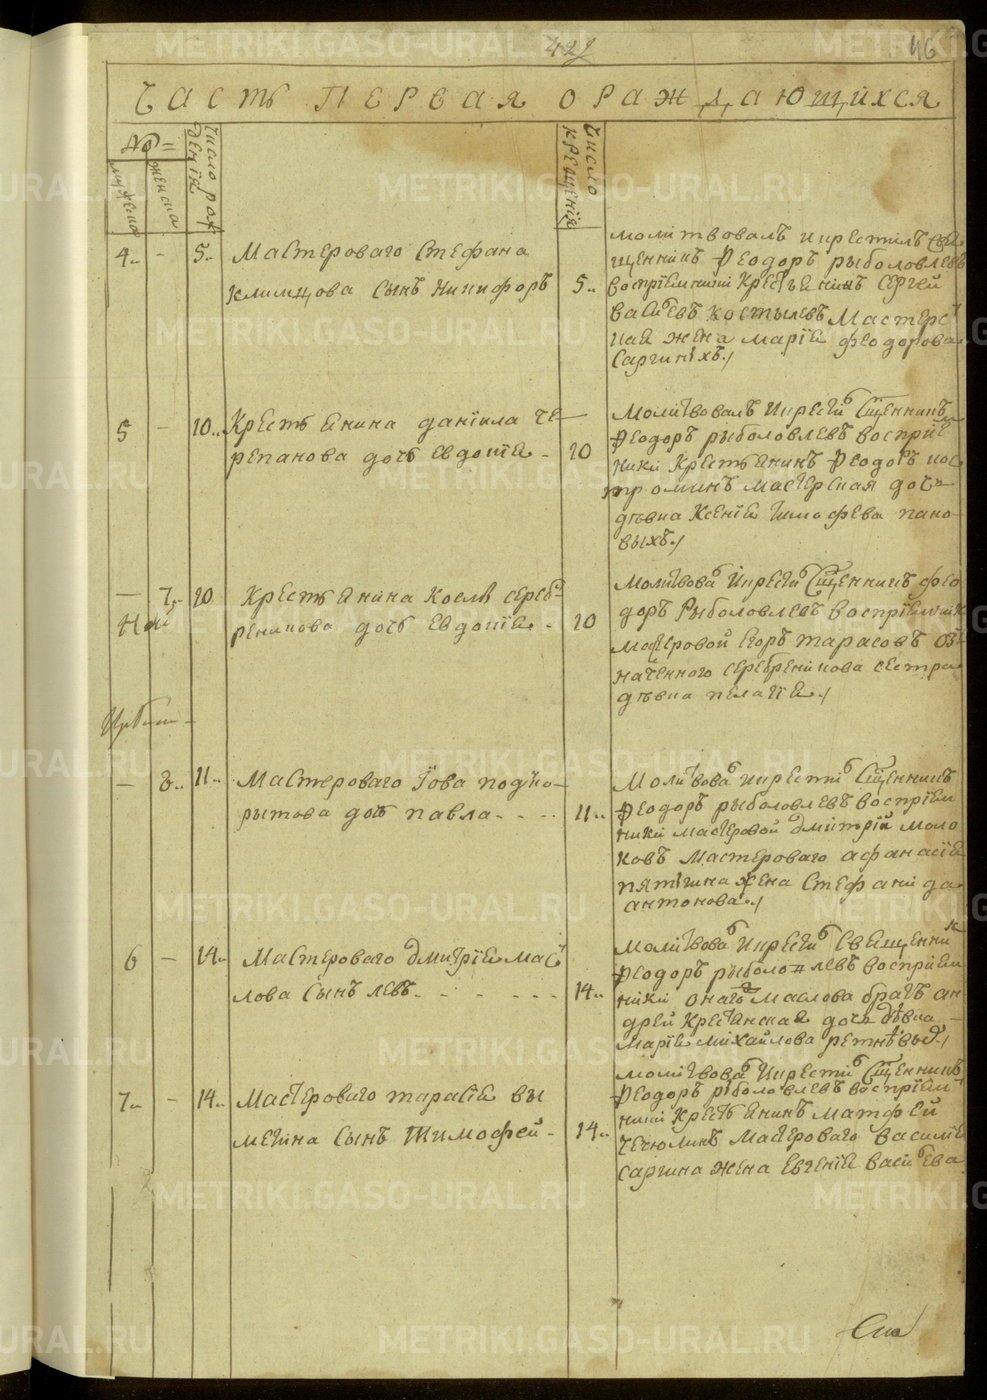 METRIKI.GASO-URAL.RU
429
46
Часть первая о раждающихся
№
мужеска
женска
Число рождения
Число крещенїя
4
-
5
Мастероваго Стефана
Климцова сынъ Никифоръ
5
молитвовалъ и крестилъ свя
щенникъ Феодоръ рыболовлевъ
воспрїемники Крестьянинъ сергей
васильевъ костылевъ мастерс
кая жена марїя феодорова
Саргиныхъ
5
-
10
Крестьянина данїила че
репанова дочь евдокїя
10
Молитвовалъ и крести Сщенникъ
Феодоръ рыболовлевъ воспрїем
ники Крестьянинъ Феодоръ кос
троминъ мастерская дочь
дѣвка Ксенїя Тимофеева пано
выхъ
-
7
10
Крестьянина Космы сереб
реникова дочь евдокїя
10
Молитвова и крести Сщенникъ фео
доръ Рыболовлевъ воспрїемники
мастеровой Егоръ тарасовъ оз
наченного серебреникова сестра
дѣвка пелагїя
-
8
11
Мастероваго Їова подко
рытова дочь павла
11
Молитвова и крести Сщенникъ
Феодоръ рыболовлевъ воспрїем
ники мастеровой дмитрїй моло
ковъ мастероваго афанасїя
пятыгина жена Стефанида
антонова
6
-
14
Мастероваго дмитрїя мас
лова сынъ левъ
14
Молитвова и крести Священник
Феодоръ рыболовлевъ воспрїем
ники онаго маслова братъ ан
дрей крестьянская дочь дѣвка
марїя михайлова
7
-
14
Мастероваго тарасїя вы
мятина сынъ Тимофей
14
молитвова и крести Сщенникъ
Феодоръ рыболовлевъ воспрїем
ники крестьянинъ матфей
мастероваго василїя
саргина жена Евгенїя васильева